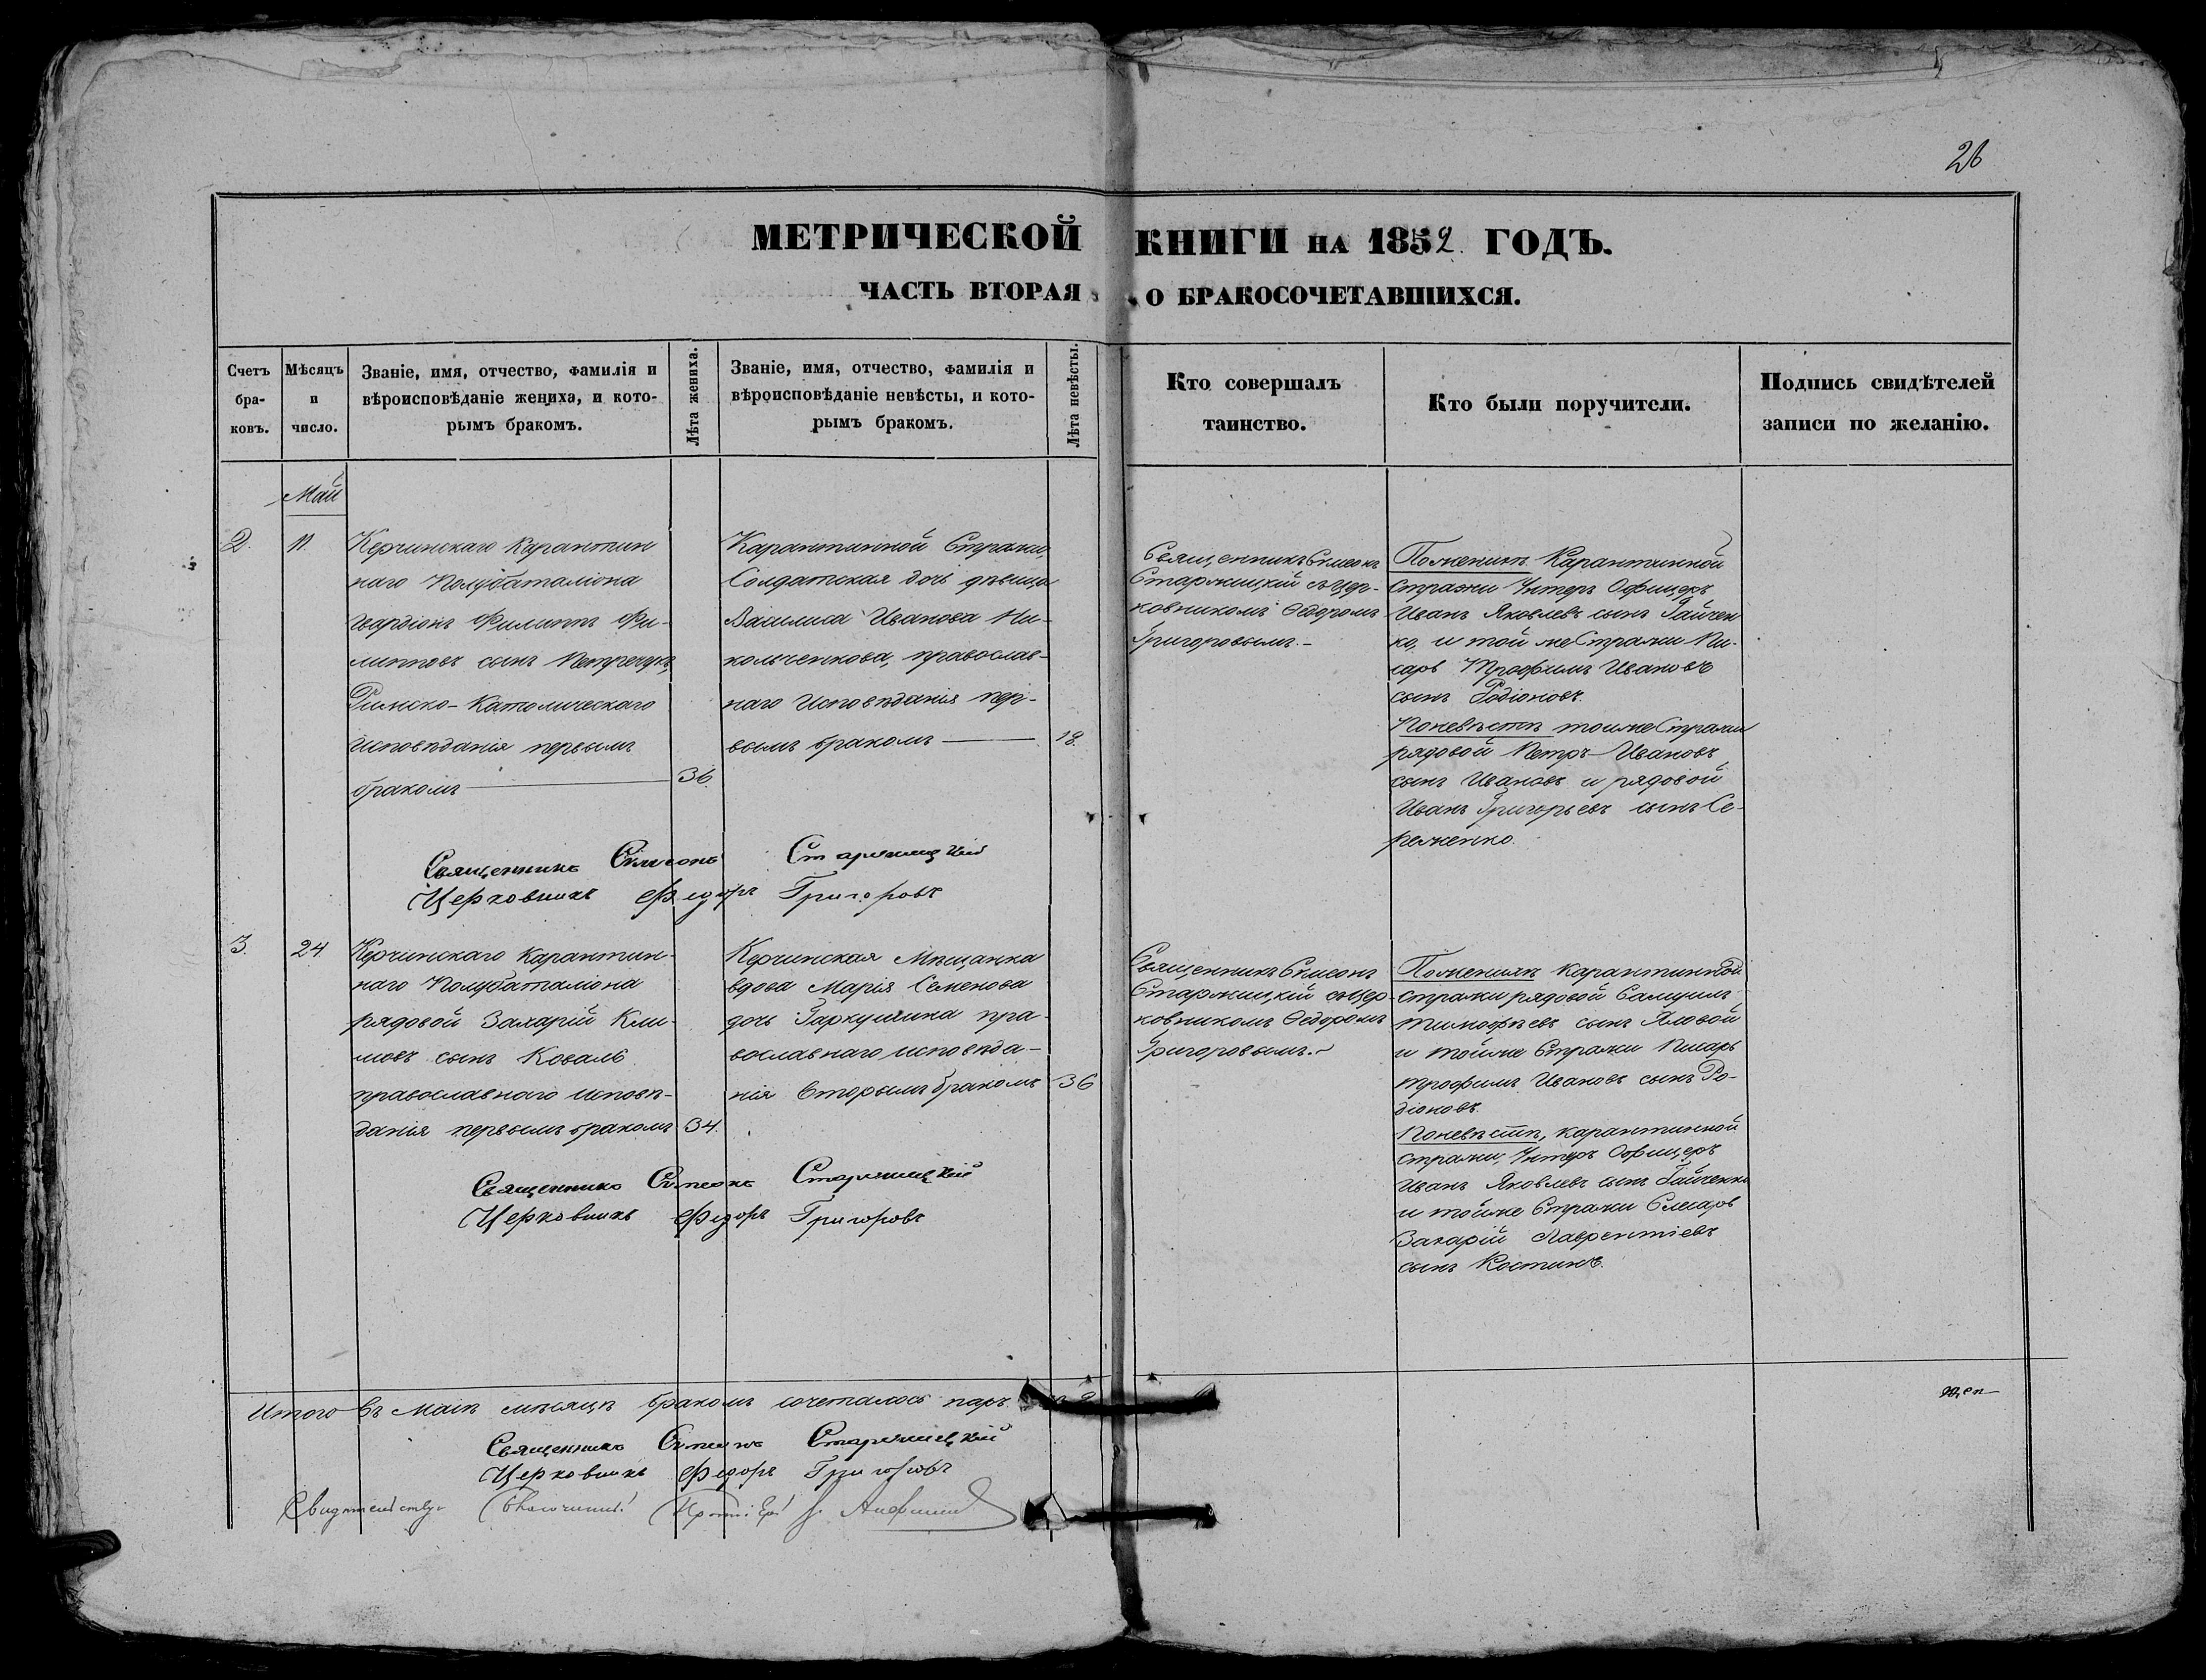 26
МЕТРИЧЕСКОЙ КНИГИ НА 1852 ГОДЪ.
ЧАСТЬ ВТОРАЯ О БРАКОСОЧЕТАВШИХСЯ.
Счетъ
бра-
ковъ.
Мѣсяцъ
и
число.
Званіе, имя, отчество, фамилія и
вѣроисповѣданіе жениха, и кото-
рымъ бракомъ.
Лѣта жениха.
Званіе, имя, отчество, фамилія и
вѣроисповѣданіе невѣсты, и кото-
рымъ бракомъ.
Лѣта невѣсты.
Кто совершалъ
таинство.
Кто были поручители.
Подпись свидѣтелей
записи по желанію.
Май
2.
11.
Керчинскаго Карантин
наго Полубаталіона
Гвардіонъ Филиппъ Фи-
липповъ сынъ
Римско-Католическаго
исповѣданія первымъ
бракомъ
36.
Карантинной Стражи,
Солдатская дочь дѣвица
Василиса Иванова Ни-
кольченкова, православ-
наго исповѣданія пер-
вымъ бракомъ
18.
Священникъ Симеонъ
Старжицкій съ Цер-
ковникомъ Ѳедоромъ
Григоровымъ.-
Поженихѣ Карантинной
стражи Унтеръ Офицеръ
Иванъ Яковлевъ сынъ Гайчен
ко, и той же Стражи Пи-
сарь Трофимъ Ивановъ
сынъ Родіоновъ.
Поневѣстѣ тойже Стражи
рядовой Петръ Ивановъ
сынъ Ивановъ и рядовой
Иванъ Григорьевъ сынъ Се-
реженко.
Священникъ Симеонъ Старжицкій
Церковникъ Федоръ Григоровъ
3.
24.
Керчинскаго Карантин-
наго Полубаталіона
рядовой Захарій Кли-
мовъ сынъ Коваль
православнаго исповѣ-
данія первымъ бракомъ
34.
Керчинская Мѣщанка
вдова Марія Семенова
дочь Гаркушина пра-
вославнаго исповѣда-
нія вторымъ бракомъ
36
Священникъ Симеонъ
Старжицкій съ Цер-
ковникомъ Ѳедоромъ
Григоровымъ.-
Поженихѣ карантинной
стражи рядовой Самуилъ
Тимофѣевъ сынъ Яловой
и тойже Стражи Писарь
Трофимъ Ивановъ сынъ Ро-
діоновъ.
Поневѣстѣ, карантинной
стражи, Унтеръ Офицеръ
Иванъ Яковлевъ сынъ Гайченко
и тойже Стражи Слесарь
Захарій Лаврентіевъ
сынъ Костинъ.
Священникъ Симеонъ Старжицкій
Церковникъ Федоръ Григоровъ
Итого въ Маіѣ мѣсяцѣ бракомъ сочеталось паръ 2
Священникъ Симеонъ Старжицкій
Церковникъ Федоръ Григоровъ
Благочинный Протоіерей